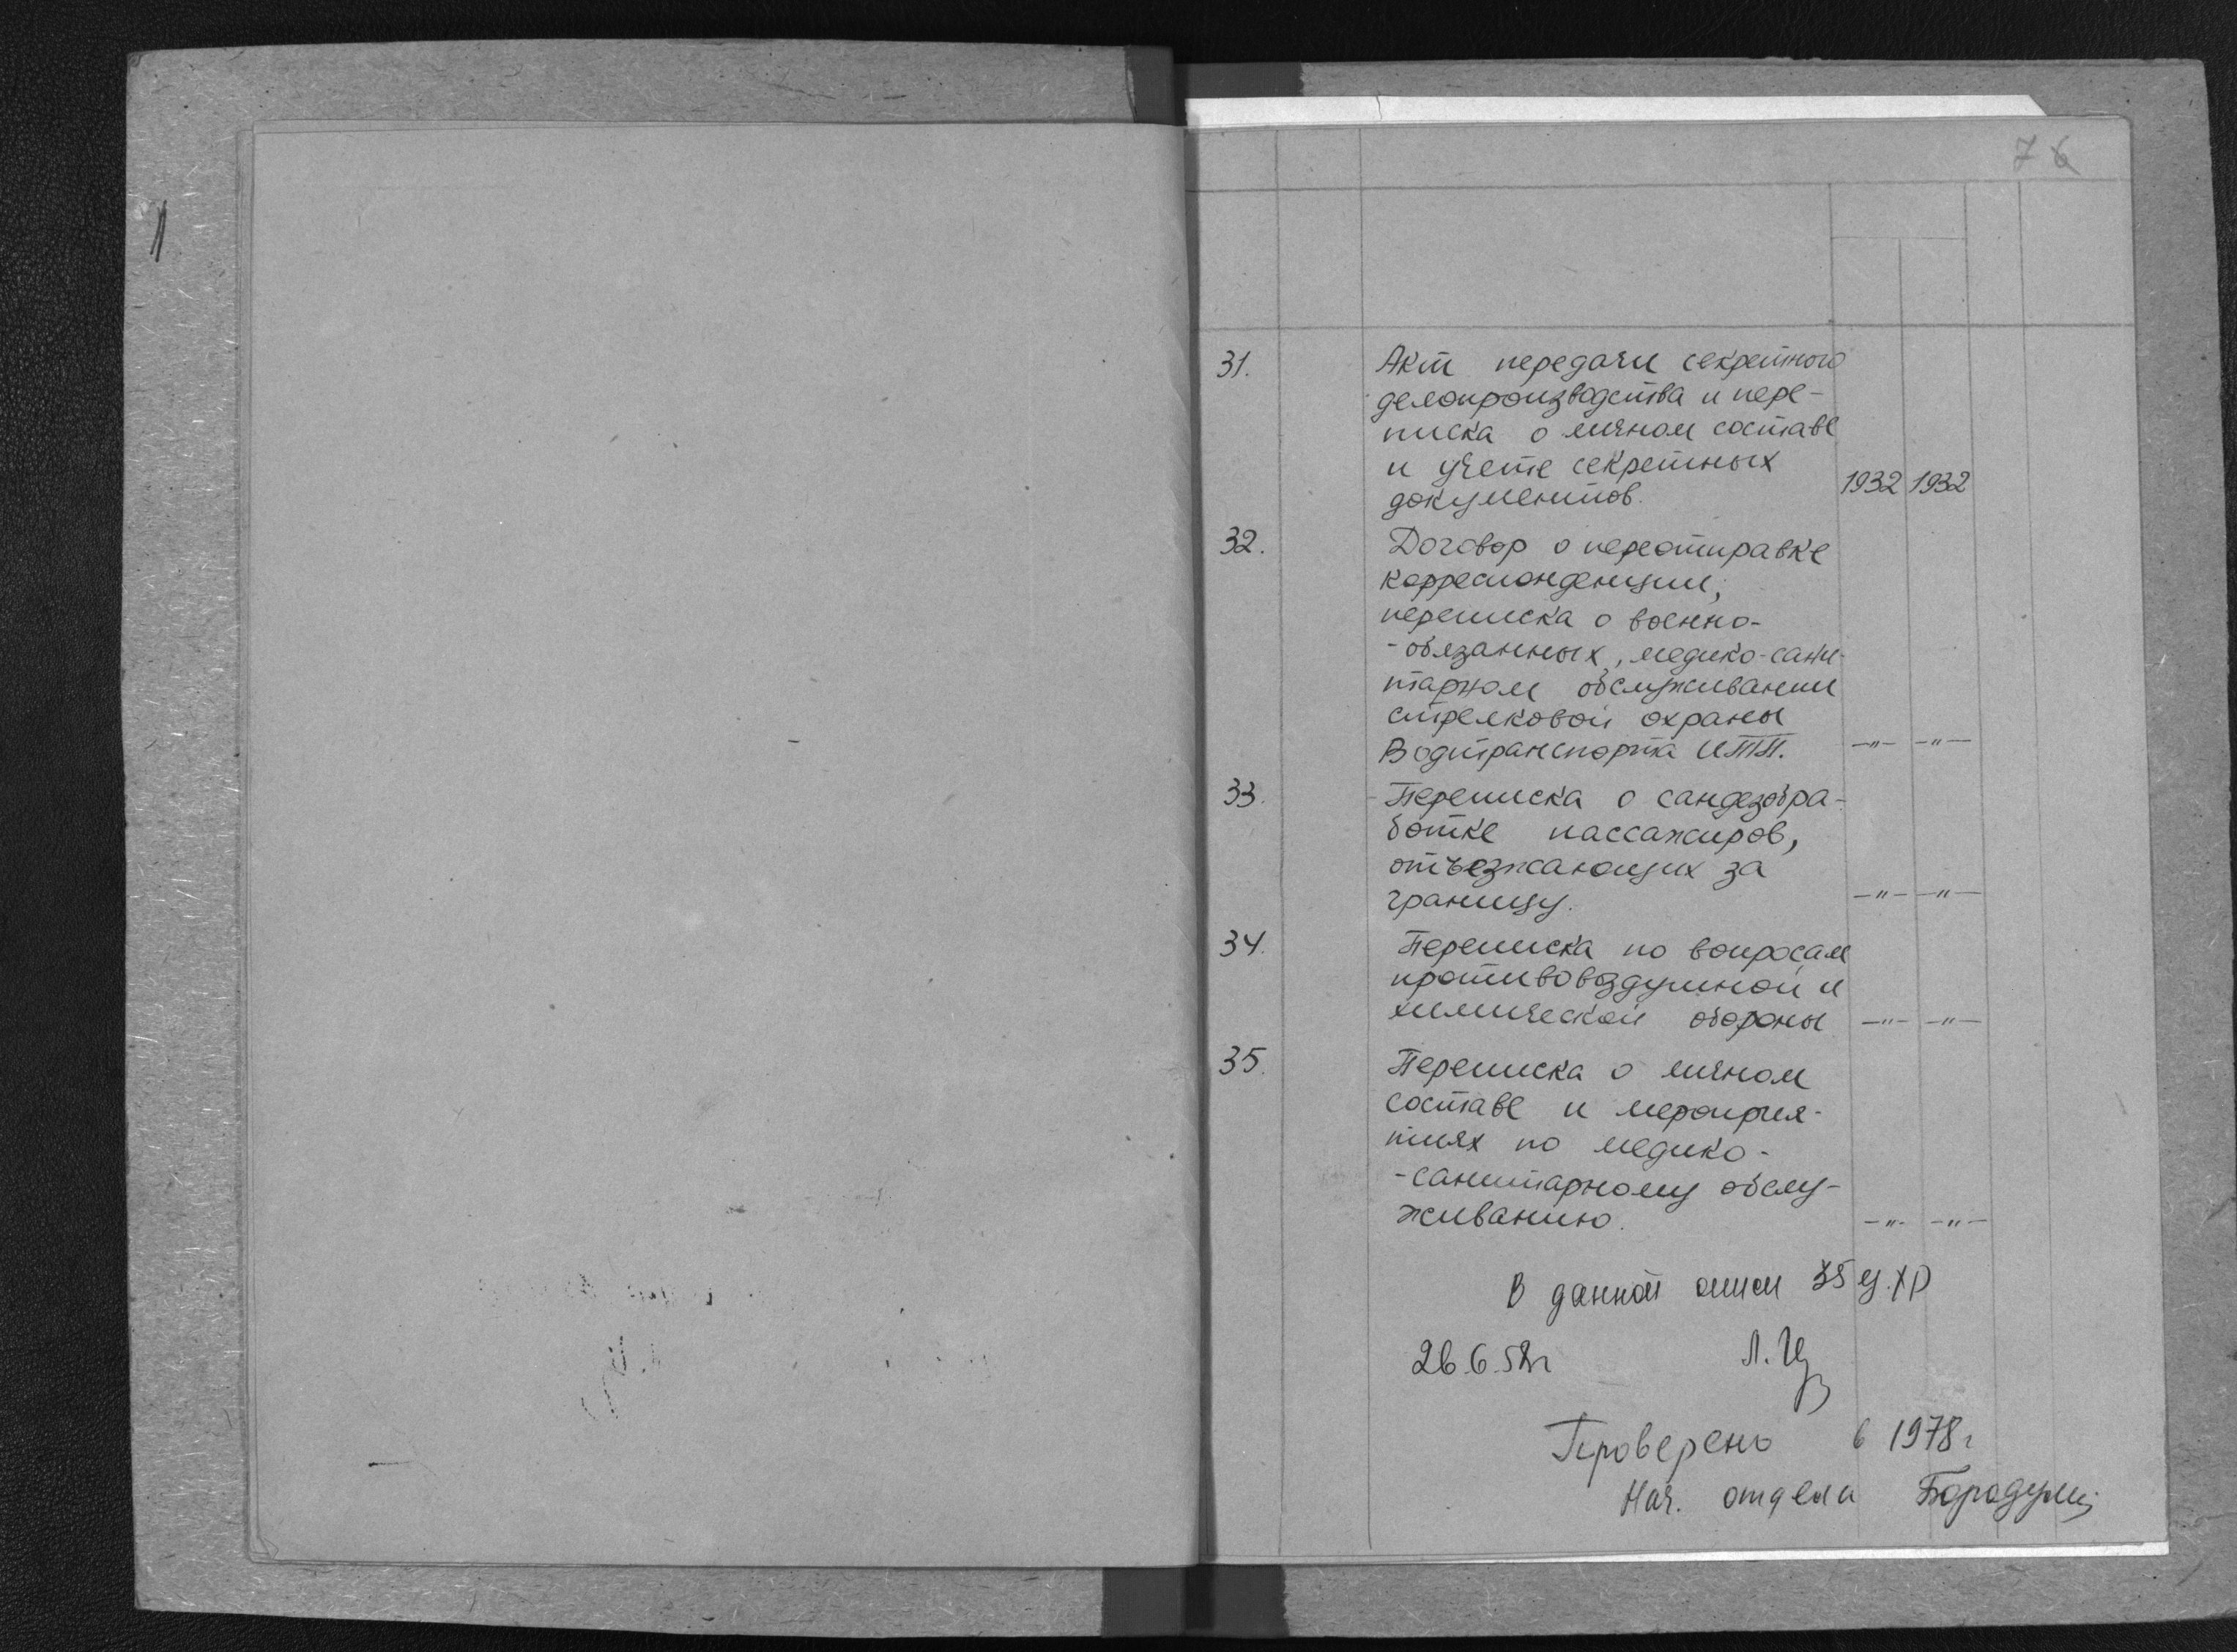 7 6
31. Акт передачи секретного
делопроизводства и пере-
писка о личном составе
и учете секретных
документов. 1932 1932
32. Договор о переотправке
корреспонденции;
переписка о военно-
-обязанных, медико-сани-
тарном обслуживании
стрелковой охраны
Водтранспорта
33. Переписка о сандезобра-
ботке пассажиров,
отъезжающих за
границу. —"— —"—
34. Переписка по вопросам
противовоздушной и
химической обороны —"— —"—
35. Переписка о личном
составе и мероприя-
тиях по медико-
-санитарному обслу-
живанию. —"— —"—
В данной описи 35 ед. хр
26.6.52г
Проверено в 1978г
Нач. отдела